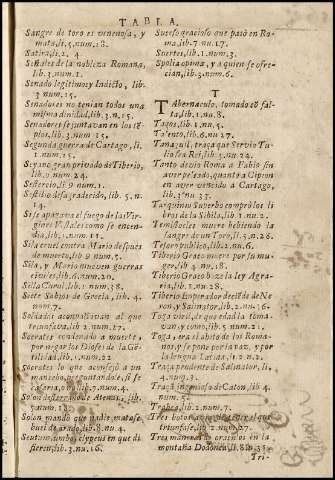 TABLA.
Sangre de toro es venenosa, y
mata, li.5. num.18.
Satira, li.2. 4
Señales de la nobleza Romana,
lib.3. num.1.
Senado legitimo y Indicto, lib.
3. num.15.
Senadores no tenian todos una
misma dinidad, lib.3. n.15.
Senadores se juntavan en los
pios, lib.3. num.15
Segunda guerra de Cartago, li.
1. num.15.
Seyano gran privado de Tiberio,
lib.9. num.24.
Sestercio, li.9. num.1.
lib.5. n.
14.
Si se apagava el fuego de las Vir
gines Vestales como se encen-
dia, lib.1. num.11.
Sila cruel contra Mario despues
de muerto, lib.9. num.5.
Sila, y Mario mueven guerras
civiles, lib.2. num.6.
Silla Curul, lib.1. num.38.
Siete Sabios de Grecia, lib.4.
num.7.
Soldados acompañavan al que
triunfava, lib.2. num.17.
Socrates condenado a muerte,
por negar los Dioses de la Gen
tilidad, lib.1. num.22
Socrates lo que aconsejó a un
mancebo preguntandole, si se
casaria, lib.7. num.4.
Solon de Atenas, lib.
Solon mandó que nadie matase
buei de arado, lib.8. num.4.
en que di
fieren, lib.3. nu.16.
Sueño gracioso que pasó en Ro-
ma, lib.7. nu.17.
Suertes, lib.1. num.3.
Spolia opima, y a quien se ofre-
cian, lib.3. num.6.
T.
Tabernaculo, tomado cō fal-
ta, lib.1. nu.8.
Tagos, lib.1. nu.5.
Talento, lib.6. nu.27.
Tanaquil, traça que Servio Tu
lio sea Rei, lib.3. nu.24.
Tanto devio Roma a Fabio sin
aver peleado, quanto a Cipion
en aver vencido a Cartago,
lib.3. num.37.
Tarquinu Superbo compró los li
bros de la Sibila, lib.1. nu.2.
Temistocles muere bebiendo la
sangre de un Toro, li.5. n.28.
Tesoro publico, lib.2. nu.6.
Tiberio Graco muere por su mu-
ger, lib.4. nu.18.
Tiberio Graco hizo la ley Agra-
ria, lib.2. num.28.
Tiberio Emperador decide de Ne
ron, y Salinator, lib.2. nu.26.
Toga viril, de que edad la toma-
van, y como, lib.5. num.21.
Toga, era el abito de los Roma-
nos, y se pone por la paz, y por
la lengua Latina, li.2. n.2.
Traça prudente de Salinator, li.
4. nu.3.
Traça ingenioso de Caton, lib.4.
num.5.
Trabea, lib.2. num.7.
el que
triunfase, lib.2. nu.17.
Tres en los en la
montaña Dodonea, li.8. n.35.
Tri-